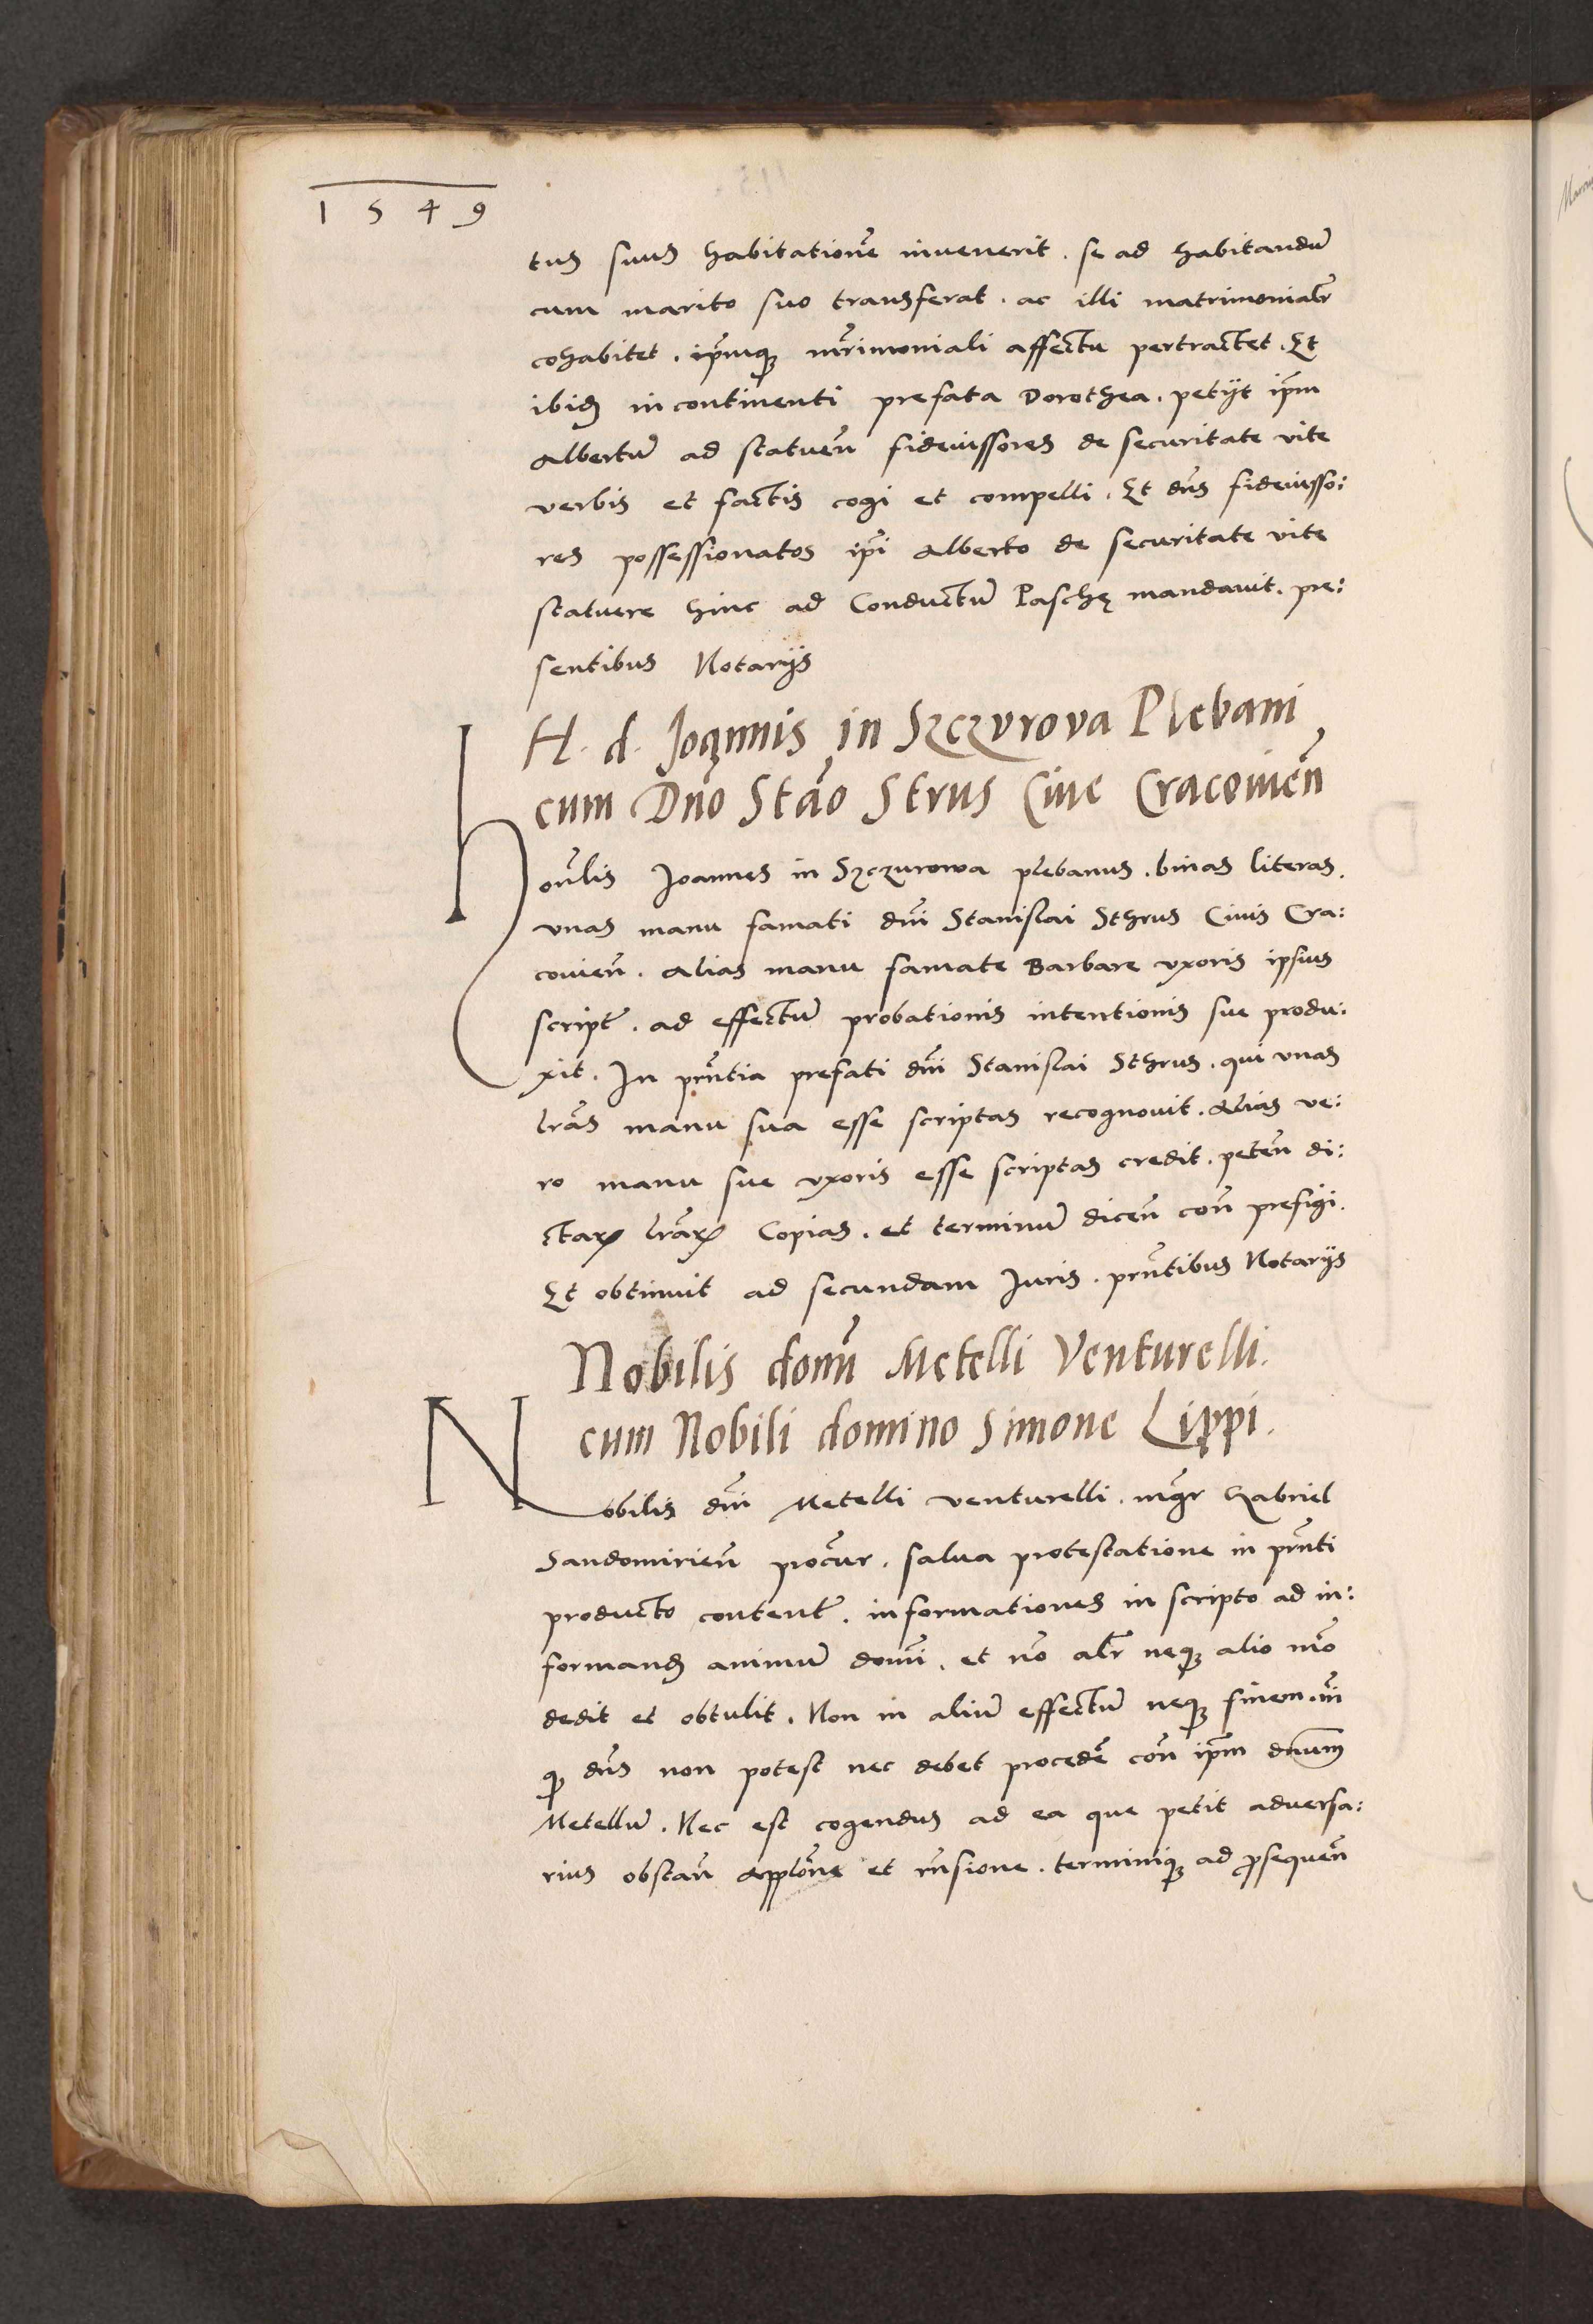 1549
tus suus habitationē invenerit . se ad habitandū
cum marito suo transferat . ac illi matrimonialr̃
cohabitet . ip̃mq₃ mr̃imoniali affectu pertractet . Et
ibid₃ incontinenti prefata Dorothea . petijt ip̃m
Albertū ad statuen̄ fideiussores de securitate vite
verbis et factis cogi et compelli . Et dn̄s fideiusso:
res possessionatos ip̃i Alberto de securitate vite
statuere hinc ad Conductū Paschę mandauit . pre:
sentibus Notarijs
H. d. Joannis in Szczurova Plebani
cum Dn̄o Stāo Strus Ciue Cracouien̄
Hon̄lis Joannes in Szczurowa plebanus . binas literas .
vnas manu famati dn̄i Stanislai Sthrus Ciuis Cra:
couien̄ . Alias manu famate Barbare vxoris ipsius
script̄ . ad effectū probationis intentionis sue produ:
xit . In pn̄tia prefati dn̄i Stanislai Sthrus . qui vnas
lr̄as manu sua esse scriptas recognouit . Alias ve:
ro manu sue vxoris esse scriptas credit . peten̄ di:
ctaꝝ lr̄aꝝ Copias . et terminū dicen̄ con̄ prefigi .
Et obtinuit ad secundam Juris . pn̄tibus Notarijs
Nobilis domī Metelli Venturelli .
cum Nobili domino Simone Lippi .
Nobilis dn̄i Metelli venturelli . mgr̄ Gabriel
Sandomirien̄ procur̄ . salua protestatione in pn̄ti
producto content̄ . informationes in scripto ad in:
formand₃ animū domī . et nō alr̄ neq₃ alio mō
dedit et obtulit . Non in aliū effectū neq₃ finem .
q₃ dn̄s non potest nec debet procedē con̄ ip̃m dnum
Metellū . Nec est cogendus ad ea que petit aduersa:
rius obstan̄ appłone et rn̄sione . terminiq₃ ad ꝓsequen̄